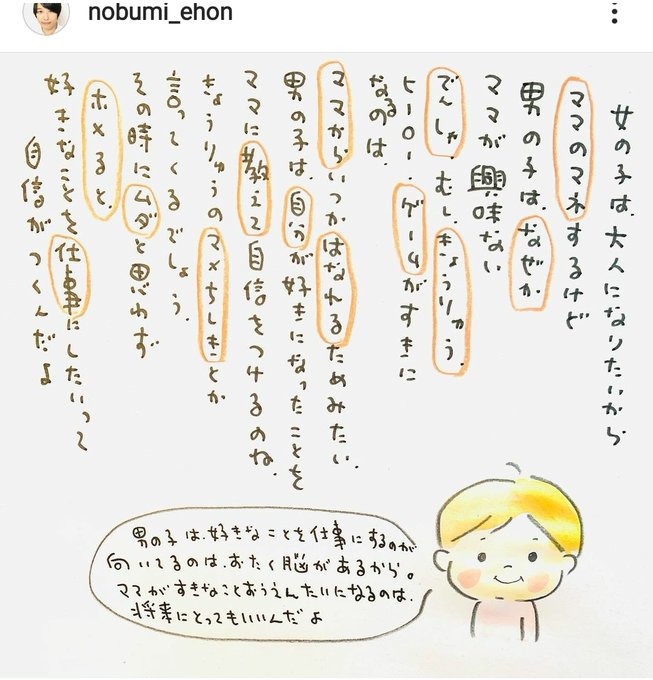 nobumi_ehon
女の子は、大人になりたいから
ママのマネするけど
男の子は、なぜか
ママが興味ない
でんしゃ、むし、きょうりゅう、
ヒーロー、ゲームがすきに
なるのは、
ママからいつかはなれるためみたい、
男の子は、自分が好きになったことを
ママに教えて自信をつけるのね、
きょうりゅうのマメちしきとか
言ってくるでしょう、
その時にムダと思わず
ホメると、
好きなことを仕事にしたいって
自信がつくんだよ
男の子は、好きなことを仕事にするのが
向いてるのは、おたく脳があるから。
ママがすきなことおうえんたいになるのは、
将来にとってもいいんだよ